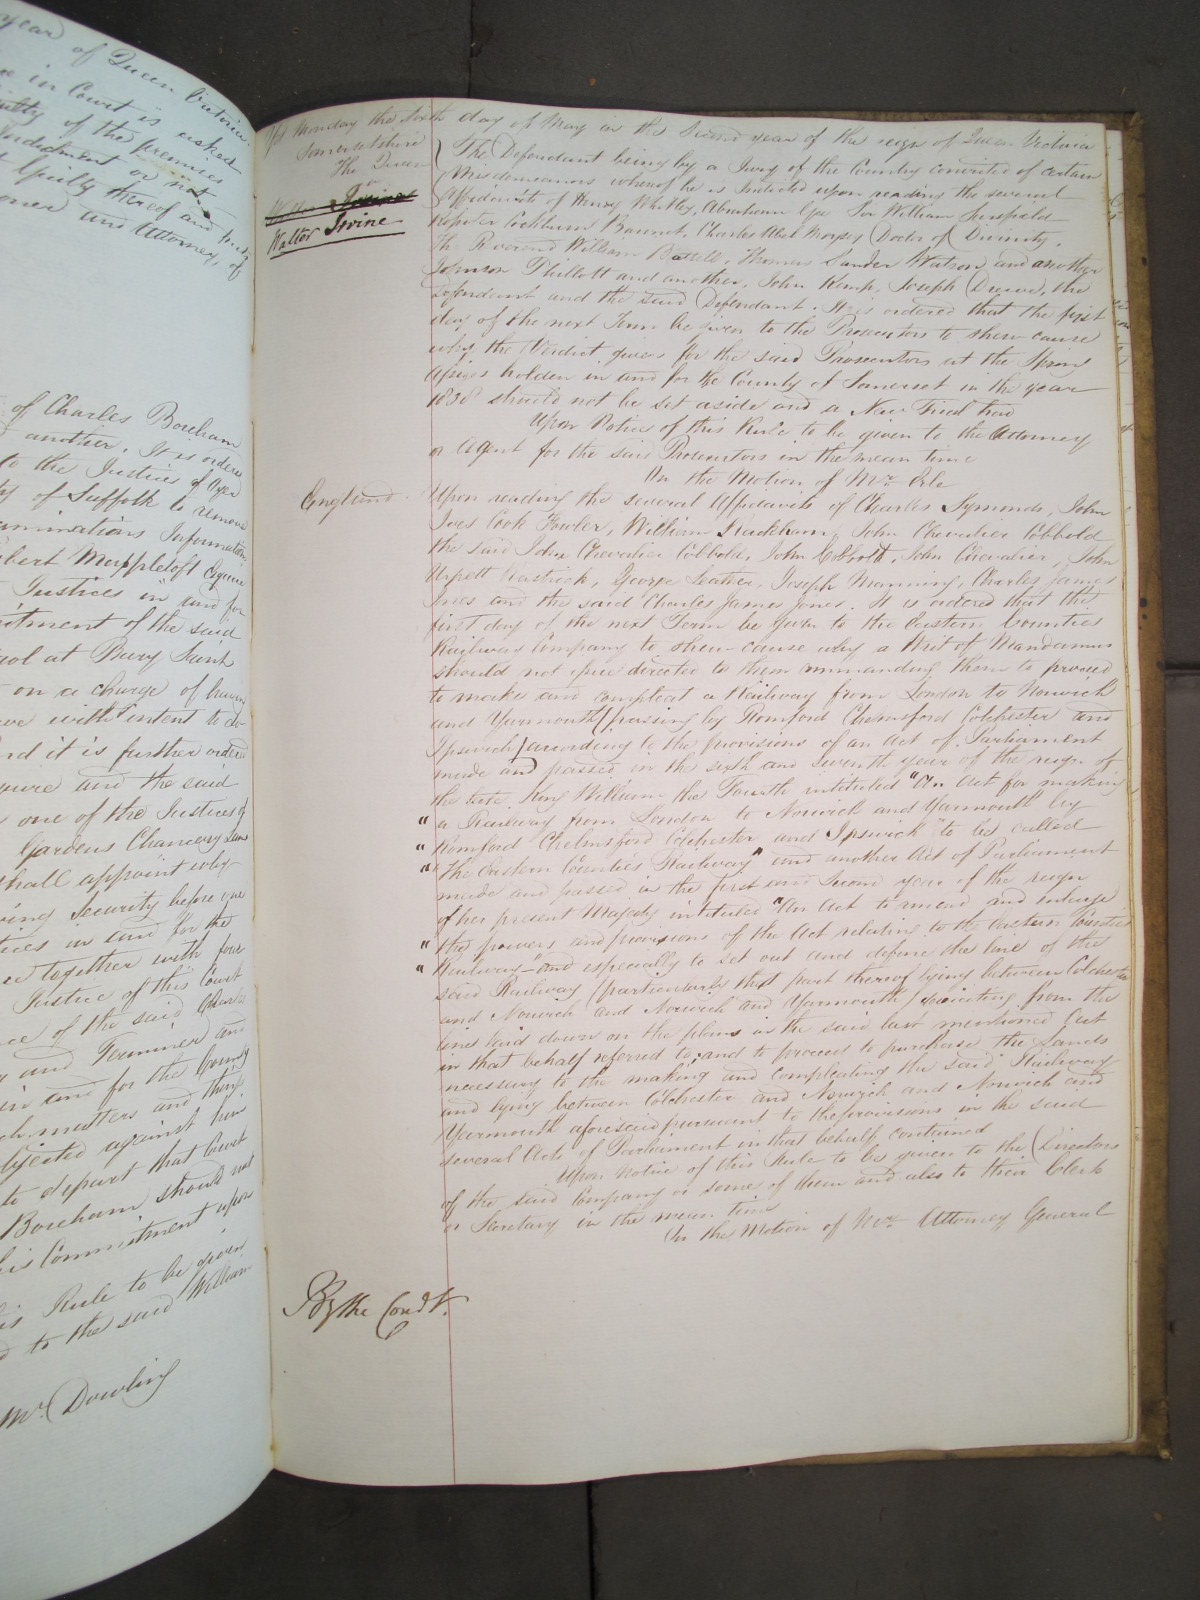 year of Queen Victoria
in Court is asked
guilty of the premises
Indictment or not
Guilty thereof and
and Attorney,
of Charles Boreham
another. It is ordered
to the Justices of Oyer
of Suffolk to remove
Examinations Information
Robert Mapplet oft Esquire
Justices in and for
Commitment of the said
Gaol at Bury Saint
on a charge of having
with intent to do
And it is further ordered
Esquire and the said
one of the Justices of
Gardens Chancery Lane
shall appoint why
giving Security before one
Justices in and for the
together with four
Justice of this Court
of the said Charles
and Terminer and
in and for the County
such matters and things
objected against him
to depart that Court
Boreham should not
his Commitment upon
this Rule to be given
to the said William
Mr. Dowling
Monday the Sixth day of May in the Second year of the reign of Queen Victoria
Somersetshire
The Queen
v
Walter Irvine
Walter Irvine
The Defendant being by a Jury of the Country convicted of certain
Misdemeanors whereof he is Indicted upon reading the several
Affidavits of Henry Whitley, Abraham Sir William
Cockburn Baronet, Charles Abel Moysey Doctor of Divinity,
The Reverend William Thomas Sander Watson and another
Johnson Phillott and another, John Kemp, Joseph the
Defendant and the said Defendant. It is ordered that the first
day of the next Term be given to the Prosecutors to shew cause
why the Verdict given for the said Prosecutors at the
Assizes holden in and for the County of Somerset in the year
1838 should not be set aside and a New Trial had
Upon Notice of this Rule to be given to the Attorney
or Agent for the said Prosecutors in the mean time
On the Motion of Mr. Erle
England
Upon reading the several Affidavits of Charles Symonds, John
Ives Cook Fowler, William John Chevalier Cobbold
the said John Chevalier Cobbold, John Cobbold, John Chevalier, John
Urpett Rastrick, George Leather, Joseph Manning, Charles James
Jones and the said Charles James Jones. It is ordered that the
first day of the next Term be given to the Eastern Counties
Railway Company to shew cause why a Writ of Mandamus
should not issue directed to them commanding them to proceed
to make and compleat a Railway from London to Norwich
and Yarmouth (passing by Romford Chelmsford Colchester and
Ipswich) according to the provisions of an Act of Parliament
made and passed in the sixth and seventh year of the reign of
the late King William the Fourth intituled "An Act for making
" a Railway from London to Norwich and Yarmouth by
" Romford Chelmsford Colchester and Ipswich to be called
" The Eastern Counties Railway" and another Act of Parliament
made and passed in the first and Second year of the reign
of her present Majesty intituled "An Act to amend and enlarge
" the powers and provisions of the Act relating to the Eastern Counties
" Railway" and especially to set out and define the line of the
said Railway (particularly that part thereof lying between Colchester
and Norwich and Norwich and Yarmouth deviating from the
line laid down on the plans in the said last mentioned Act
in that behalf referred to; and to proceed to purchase the Lands
necessary to the making and compleating the said Railway
and lying between Colchester and Norwich and Norwich and
Yarmouth aforesaid pursuant to the provisions in the said
several Acts of Parliament in that behalf contained
Upon Notice of this Rule to be given to the Directors
of the said Company or some of them and also to their Clerk
or Secretary in the mean time
On the Motion of Mr. Attorney General
By the Court.